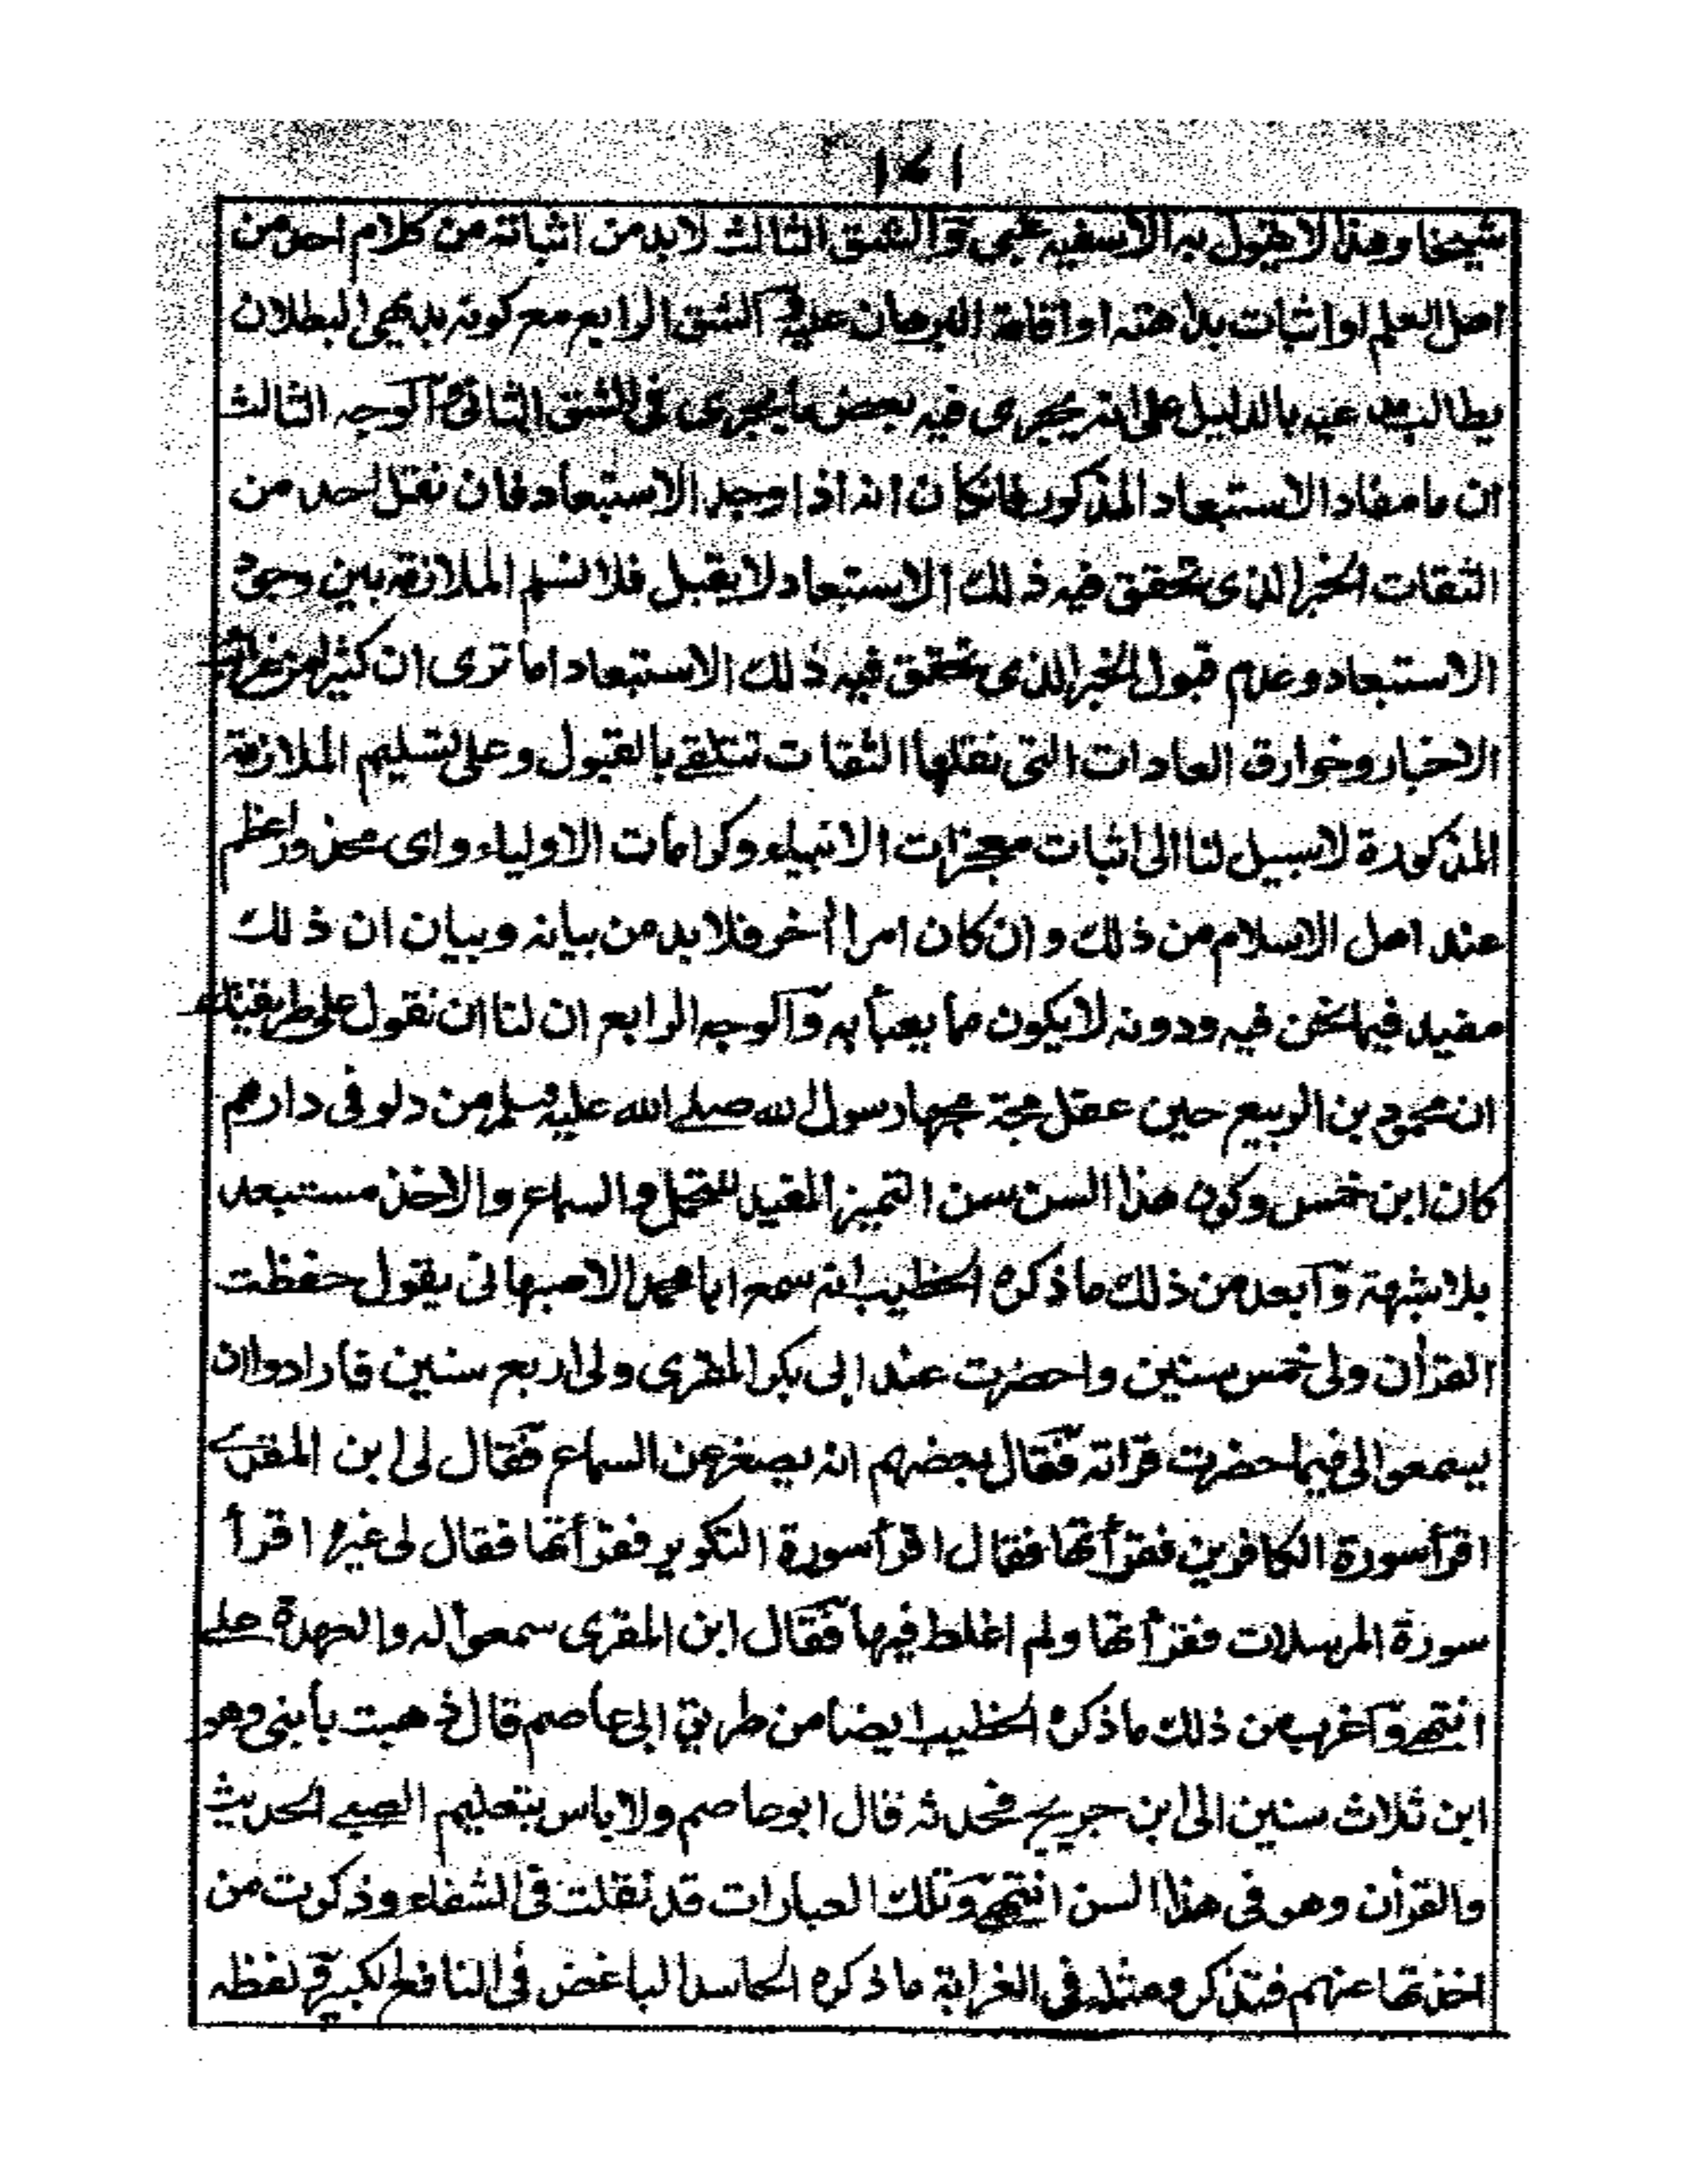 ١٧١
شيخنا وهذا لا يقول به الا سفيه غبى وَالشق الثالث لابد من اثباته من كلام احد من
اهل العلم او اثبات بداهته او اقامة البرهان عليه وَالشق الرابع مع كونه بديهى البطلان
يطالب مدعيه بالدليل على انه يجرى فيه بعض ما يجرى فى الشق الثانى اَلوجه الثالث
ان ما مفاد الاستبعاد المذكور فان كان انه اذا وجد الاستبعاد فان نقل احد من
الثقات الخبر الذى تحقق فيه ذلك الاستبعاد لا يقبل فلا نسلم الملازمة بين وجود
الاستبعاد وعدم قبول الخبر الذى تحقق فيه ذلك الاستبعاد اما ترى ان كثيرا من غرائب
الاخبار وخوارق العادات التى نقلها الثقات تتلقى بالقبول وعلى تسليم الملازمة
المذكورة لا سبيل لنا الى اثبات معجزات الانبياء وكرامات الاولياء واى محذور اعظم
عند اهل الاسلام من ذلك وان كان امرا أخر فلا بد من بيانه وبيان ان ذلك
مفيد فيما نحن فيه ودونه لا يكون مما يعبأ به وَالوجه الرابع ان لنا ان نقول على طريقتك
ان محمود بن الربيع حين عقل مجة مجها رسول الله صلى الله عليه وسلم من دلو فى دارهم
كان ابن خمس وكون هذا السن سن التميز المفيد للتحمل والسماع والاخذ مستبعد
بلا شبهة وَابعد من ذلك ما ذكره الخطيب انه سمع ابا محمد الاصبهانى يقول حفظت
القرأن ولى خمس سنين واحضرت عند ابى بكر المقرى ولى اربع سنين فارادوا ان
يسمعوا لى فيما حضرت قراته فَقال بعضهم انه يصغر عن السماع فَقال لى ابن المقرى
اقرأ سورة الكافرين فقرأتها فقال اقرأ سورة التكوير فقرأتها فقال لى غيره اقرأ
سورة المرسلات فقرأتها ولم اغلط فيها فَقال ابن المقرى سمعوا له والعهدة على
انتهى وَاغرب من ذلك ما ذكره الخطيب ايضا من طريق ابى عاصم قال ذهبت بابنى وهو
ابن ثلاث سنين الى ابن جريج فحدثه قال ابو عاصم ولا باس بتعليم الصبى الحديث
والقرأن وهو فى هذا السن انتهى وَتلك العبارات قد نقلت فى الشفاء وذكرت من
اخذتها عنهم فتذكر ومثله فى الغرابة ما ذكره الحاسد الباغض فى النافع الكبير وَلفظه